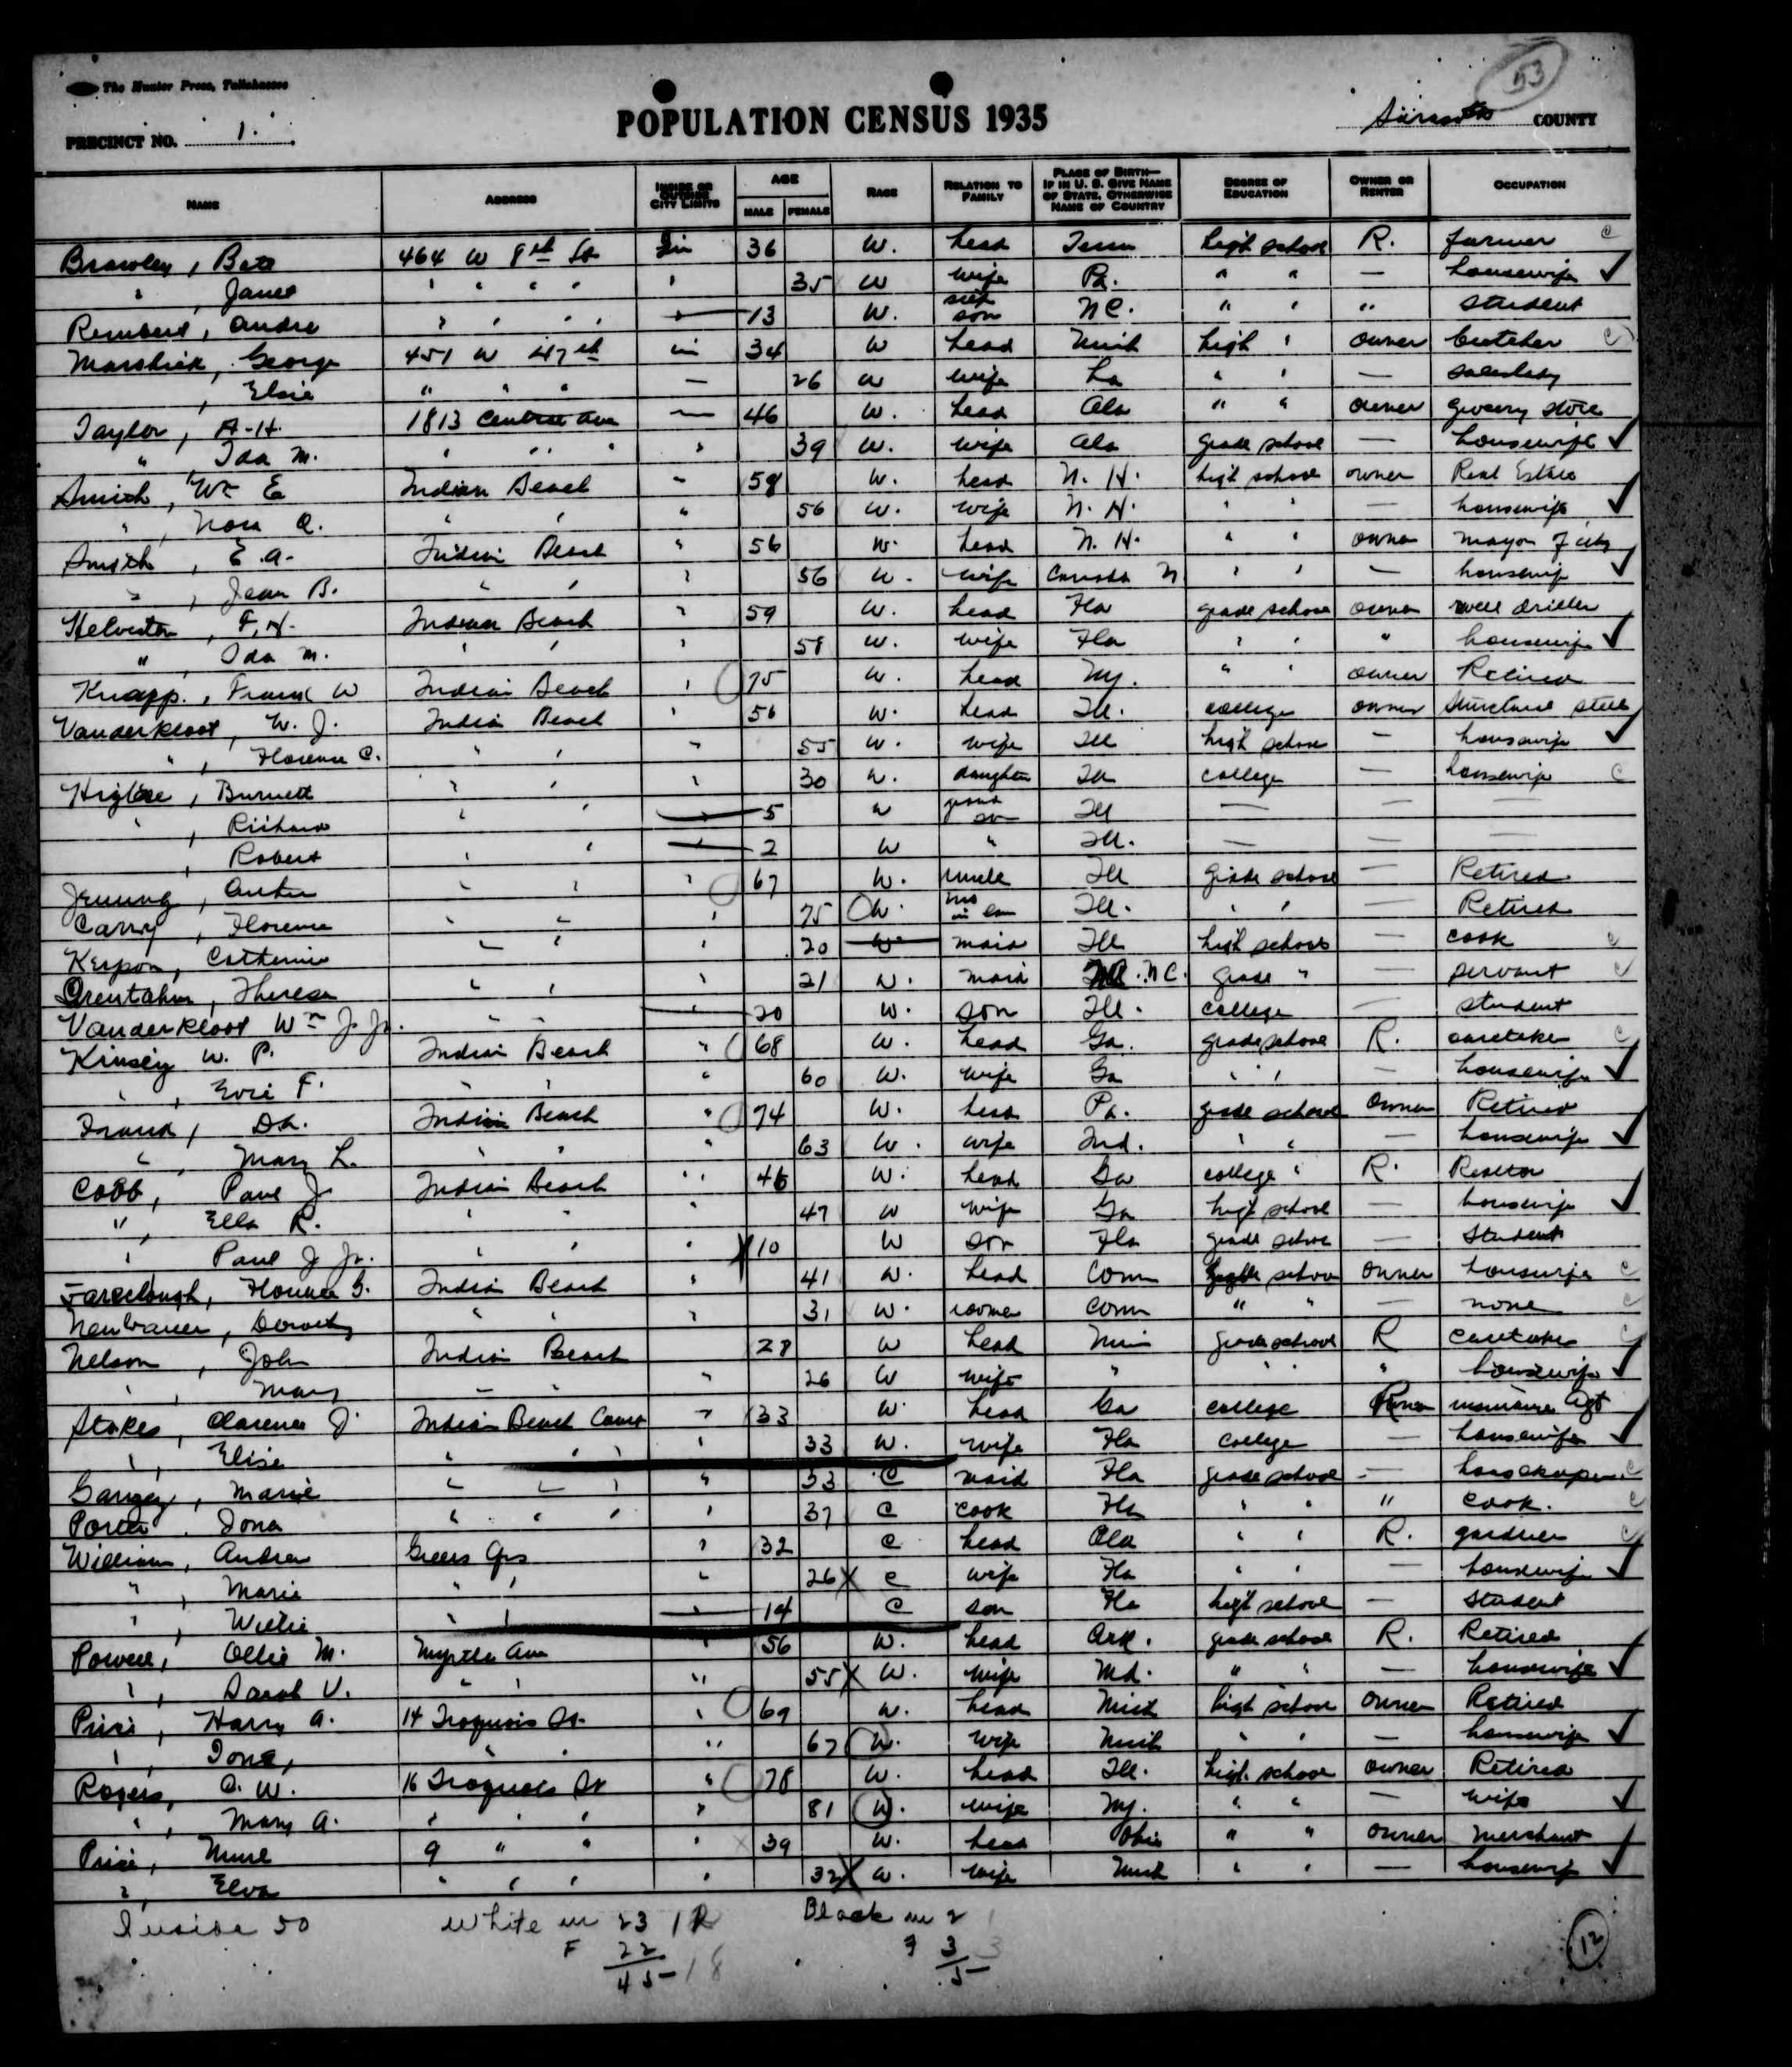 53
The Hunter Press, Tallahassee
POPULATION CENSUS 1935
PRECINCT NO. 1. Sarasota COUNTY
NAME ADDRESS INSIDE OR OUTSIDE CITY LIMITS AGE MALE FEMALE RACE RELATION TO FAMILY PLACE OF BIRTH—IF IN U. S. GIVE NAME OF STATE, OTHERWISE NAME OF COUNTRY DEGREE OF EDUCATION OWNER OR RENTER OCCUPATION
Brawley, 464 W 8th St in 36 W. head Tenn high school R. farmer c
" , Janet " " " " " 35 W wife Pa. " " — housewife ✓
Rembert, Andre " " " " — 13 W. step son NC. " " " student
George 451 W 47th in 34 W head Mich high " owner butcher c
, Elsie " " " — 26 W wife La " " — saleslady
Taylor, A-H. 1813 Central Ave — 46 W. head Ala " " owner grocery store
" Ida M. " " " " 39 W. wife Ala grade school — housewife ✓
Smith, Wm E Indian Beach " 58 W. head N. H. high school owner Real Estate
" , Nora A. " " " 56 W. wife N. H. " " — housewife ✓
Smith, E. A. Indian Beach " 56 W. head N. H. " " owner mayor of city
" , Jean B. " " " 56 W. wife Canada N " " — housewife ✓
Helveston, F. H. Indian Beach " 59 W. head Fla grade school owner well driller
" Ida M. " " " 58 W. wife Fla " " " housewife ✓
Knapp., Frank W Indian Beach " 75 W. head NY. " " owner Retired
Vanderkloot, W. J. Indian Beach " 56 W. head Ill. college owner Structural steel
" , Florence C. " " " 55 W. wife Ill high school — housewife ✓
Higbee, Burnett " " " 30 W. daughter Ill college — housewife c
" , Richard " " — 5 W grand son Ill — — —
, Robert " " — 2 W " Ill. — — —
" " " 67 W. uncle Ill grade school — Retired
Florence " " " 75 W. in law Ill. " " — Retired
Catherine " " " 20 W maid Ill high school — cook c
Theresa " " " 21 W. maid N.C. grade " — servant c
Vanderkloot Wm J. Jr. " " — 20 W. son Ill. college — student
Kinsey W. P. Indian Beach " 68 W. head Ga. grade school R. caretaker c
" , Evie F. " " " 60 W. wife Ga " " — housewife ✓
Dr. Indian Beach " 74 W. head Pa. grade school owner Retired
" , Mary L. " " " 63 W. wife Ind. " " — housewife ✓
Cobb, Paul J Indian Beach " 46 W. head Ga college " R. Realtor
" , Ella R. " " " 47 W wife Ga high school — housewife ✓
" Paul J Jr. " " " 10 W son Fla grade school — Student
Florence G. Indian Beach " 41 W. head Conn high school owner housewife c
Neubauer, Dorothy " " " 31 W. roomer Conn " " — none c
Nelson, John Indian Beach 28 W head grade school R caretaker c
" , Mary " " " 26 W wife " " " " housewife ✓
Stokes, Clarence J. Indian Beach Court " 33 W. head Ga college owner insurance agt
" , Elise " " " " 33 W. wife Fla college — housewife ✓
Marie " " " " 33 C maid Fla grade school — housekeeper c
Porter, Iona " " " " 37 C cook Fla " " " cook. c
William, Andrew " 32 C head Ala " " R. gardner c
" , Marie " " " 26 X C wife Fla " " — housewife ✓
" , Willie " " — 14 C son Fla high school — Student
Powell, Ollie M. Myrtle Ave " 56 W. head Ark. grade school R. Retired
" , Sarah V. " " " 55 X W. wife Md. " " — housewife ✓
Price, Harry A. 14 Iroquois St. " 69 W. head Mich high school owner Retired
" , Iona, " " " 67 W. wife Mich " " — housewife ✓
Rogers, O. W. 16 Iroquois St " 78 W. head Ill. high school owner Retired
" , Mary A. " " " " 81 W. wife NY. " " — wife ✓
Price, Murl 9 " " " 39 W. head Ohio " " owner merchant
" , Elva " " " " 32 X W. wife Mich " " — housewife ✓
Inside 50 White m 23 Black m 2
F 22 F 3
45 18 5
12